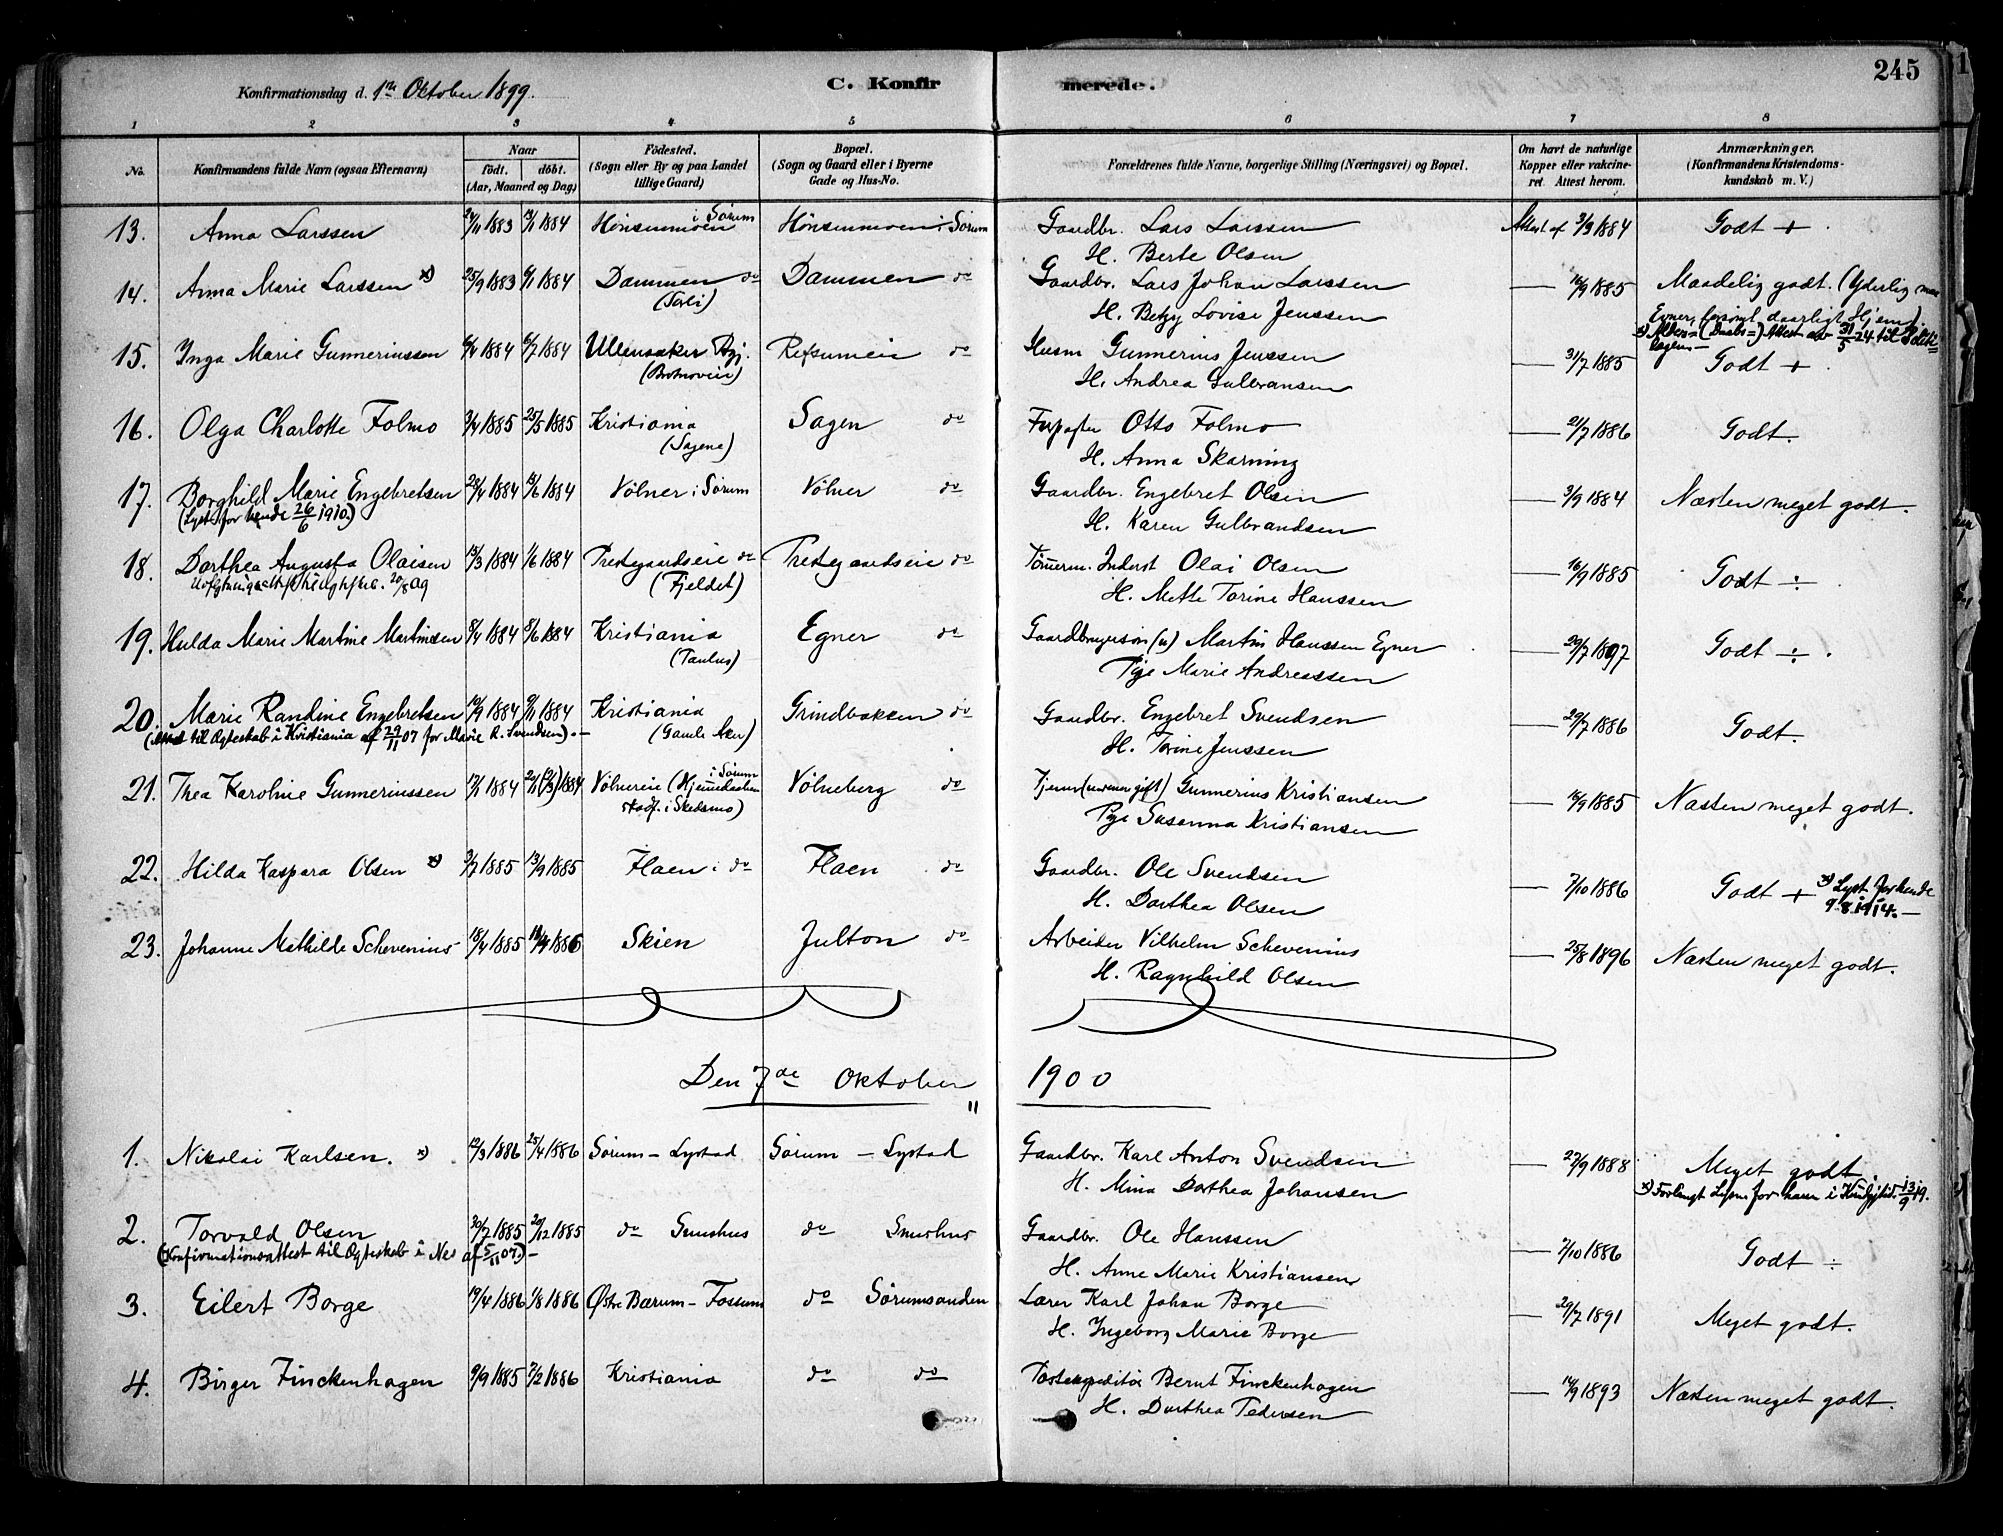 245
Konfirmationsdag d. 1ste Oktober 1899.
C. Konfirmerede.
1 2 3 4 5 6 7 8
No. Konfirmandens fulde Navn (ogsaa Efternavn) Naar født. døbt. (Aar, Maaned og Dag) Fødested. (Sogn eller By og paa Landet tillige Gaard) Bopæl. (Sogn og Gaard eller i Byerne Gade og Hus-No. Forældrenes fulde Navne, borgerlige Stilling (Næringsvei) og Bopæl. Om havt de naturlige Kopper eller vakcineret. Attest herom. Anmærkninger. (Konfirmandens Kristendomskundskab m. V.)
13. Anna Larssen 1883 1884 Hönsenmoen i Sørum Hönsenmoen i Sørum Gaardbr. Lars Larssen Attest af 3/9 1884 Godt +
H. Berte Olsen
14. Anna Marie Larssen x) 25/9 1883 6/1 1884 Dammen do Dammen do Gaardbr. Lars Johan Larssen — 16/9 1885 Maadelig godt. (Yderlig
H. Betzy Lovise Jenssen Evner, forsømt, daarligt Hjem)
x) Alders- (Daabs-) Attest av 31/5 24 til
15. Inga Marie Gunneriussen 6/4 1884 6/7 1884 Ullensaker Refsumeie do Husm Gunnerius Jenssen — 31/7 1885 Godt +
H. Andrea Gulbransen
16. Olga Charlotte Folmo 3/4 1885 25/5 1885 Kristiania Sagen do Otto Folmo — 21/7 1886 Godt.
(Sagene) H. Anna Skarning
17. Borghild Marie Engebretsen 28/4 1884 1884 Völner i Sørum Völner do Gaardbr. Engebret Olsen — 3/9 1884 Næsten meget godt.
(Lyst for hende 26/6 1910.) H. Karen Gulbrandsen
18. Dorthea Augusta Olaisen 15/3 1884 1/6 1884 Prestegaardseie do Prestegaardseie do Tömerm. Inderst Olai Olsen — 16/9 1885 Godt ÷
20/8 09 (Fjeldet) H. Mette Torine Hanssen
19. Hulda Marie Martine Martinsen 8/4 1884 8/6 1884 Kristiania Egner do Gaardbrugersön (u) Martin Hanssen Egner — 29/7 1897 Godt ÷ .
(Paulus) Pige Marie Andreassen
20. Marie Randine Engebretsen 10/9 1884 9/11 1884 Kristiania Grindbakken do Gaardbr. Engebret Svendsen — 29/7 1886 Godt.
(Attest til Ægteskab i Kristiania af 27/11 07 for Marie R. Svendsen). — (Gamle Aker) H. Torine Jenssen
21. Thea Karoline Gunneriussen 1884 1884 Völnereie (Hjemmedøbt i Sørum Völneberg do Tjener (nu gift) Gunnerius Kristiansen — 16/9 1885 Næsten meget godt.
stadf. i Skedsmo) Pige Susanna Kristiansen
22. Hilda Kaspara Olsen x) 3/7 1885 13/9 1885 Flaen i do Flaen do Gaardbr. Ole Svendsen — 7/10 1886 Godt + x) Lyst for hende
H. Dorthea Olsen 9.8.1914. —
23. Johanne Mathilde Schevenius 18/4 1885 1886 Skien Julton do Arbeider Vilhelm Schevenius — 25/8 1896 Næsten meget godt.
H. Ragnhild Olsen
Den 7de Oktober 1900
1. Nikolai Karlsen. x) 12/3 1886 25/4 1886 Sørum – Lystad Sørum – Lystad Gaardbr. Karl Anton Svendsen — 27/9 1888 Meget godt
H. Mina Dorthea Johansen x) Forlangt Lysn. for ham i 13/9 19.
2. Torvald Olsen 30/7 1885 20/12 1885 do Smeshus do Smeshus Gaardbr. Ole Hanssen — 7/10 1886 Godt ÷
(Konfirmationsattest til Ægteskab i Nes af 5/11 07.) — H. Anne Marie Kristiansen
3. Eilert Borge 19/4 1886 1/8 1886 Østre Bærum – Fossum do Sørumsanden Lærer Karl Johan Borge — 29/7 1891 Meget godt.
H. Ingeborg Marie Borge
4. Birger Finckenhagen 9/9 1885 7/2 1886 Kristiania do do Postexpeditör Bernt Finckenhagen — 14/9 1893 Næsten meget godt.
H. Dorthea Pedersen